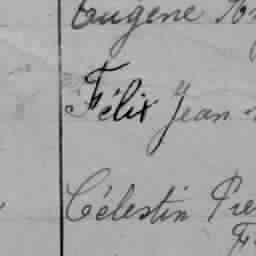 Eugène
Félix Jean
Célestin